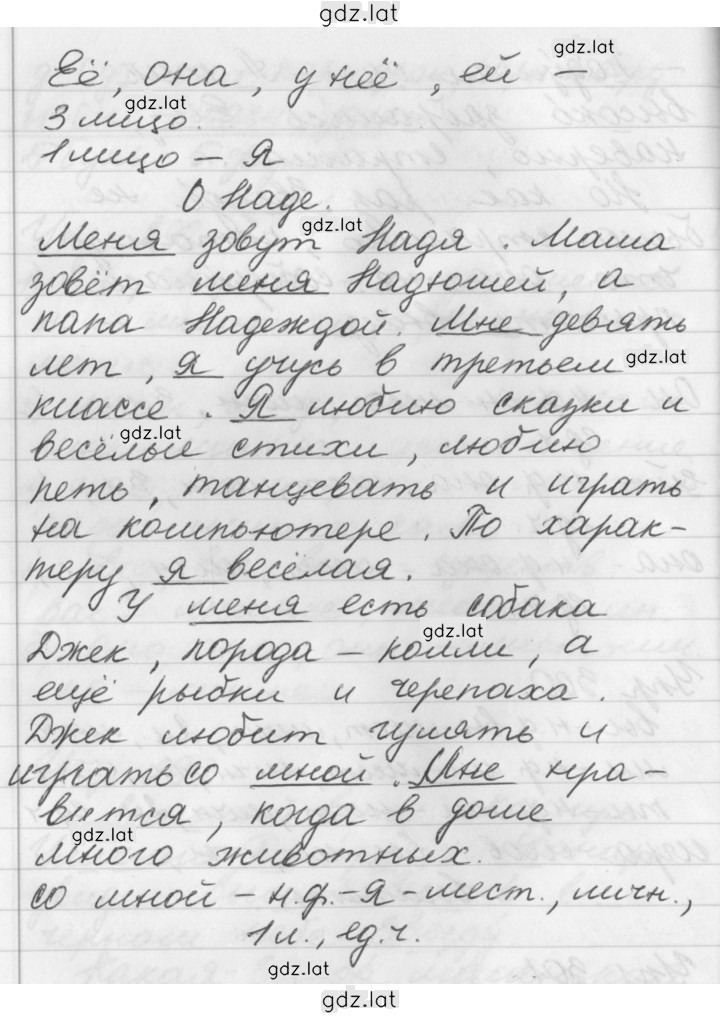 gdz.lat
gdz.lat
Её, она, у неё, ей –
gdz.lat
3 лицо.
1 лицо – Я
О Наде.
gdz.lat
Меня зовут Надя. Мама
зовёт меня Надюшей, а
папа Надеждой. Мне девять
лет, я учусь в третьем gdz.lat
классе. Я люблю сказки и
gdz.lat
весёлые стихи, люблю
петь, танцевать и играть
на компьютере. По харак-
теру я весёлая.
У меня есть собака
gdz.lat
Джек, порода – колли, а
ещё рыбки и черепаха.
Джек любит гулять и
играть со мной. Мне нра-
вится, когда в доме
gdz.lat
много животных.
со мной – н.ф.-Я – мест., личн.,
1 л., ед.ч.
gdz.lat
gdz.lat